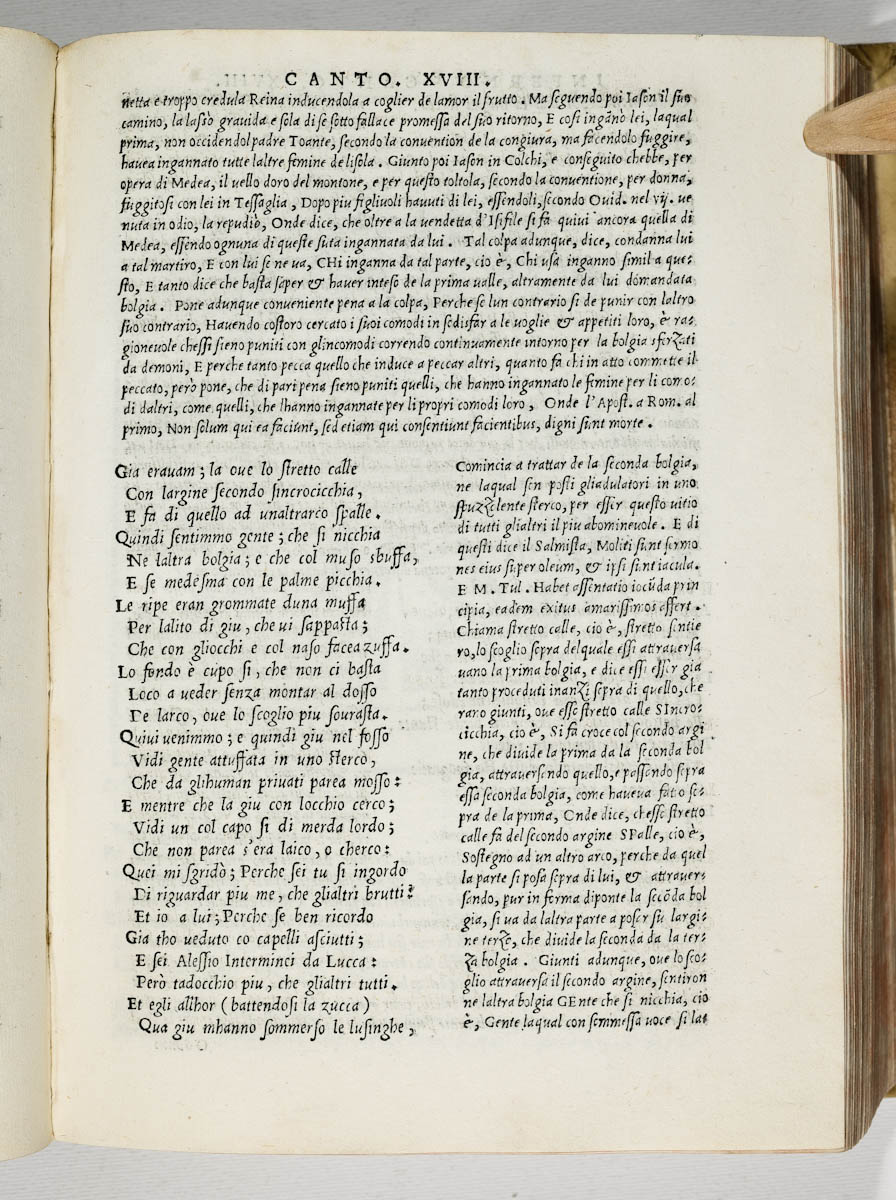 CANTO. XVIII.
netta e troppo credula Reina inducendola a coglier de lamor il frutto. Ma seguendo poi Iason il suo
camino, la lasciò grauida e sola di se sotto fallace promessa del suo ritorno, E cosi ingānò lei, laqual
prima, non occidendol padre Toante, secondo la conuention de la congiura, ma facendolo fuggire,
hauea ingannato tutte laltre femine de lisola. Giunto poi Iason in Colchi, e conseguito chebbe, per
opera di Medea, il uello doro del montone, e per questo toltola, secondo la conuentione, per donna,
fuggitosi con lei in Tessaglia, Dopo piu figliuoli hauuti di lei, essendoli, secondo Ouid. nel vij. ue
nuta in odio, la repudiò, Onde dice, che oltre a la uendetta d'Isifile si fa quiui ancora quella di
Medea, essendo ognuna di queste suta ingannata da lui. Tal colpa adunque, dice, condanna lui
a tal martiro, E con lui se ne ua, CHi inganna da tal parte, cio è, Chi usa inganno simil a que-
sto, E tanto dice che basta saper & hauer inteso de la prima ualle, altramente da lui domandata
bolgia. Pone adunque conueniente pena a la colpa, Perche se lun contrario si de punir con laltro
suo contrario, Hauendo costoro cercato i suoi comodi in sodisfar a le uoglie & appetiti loro, è ra-
gioneuole chessi sieno puniti con glincomodi correndo continuamente intorno per la bolgia sferzati
da demoni, E perche tanto pecca quello che induce a peccar altri, quanto fa chi in atto commette il
peccato, però pone, che di pari pena sieno puniti quelli, che hanno ingannato le femine per li como-
di daltri, come quelli, che lhanno ingannate per li propri comodi loro, Onde l'Apost. a Rom. al
primo, Non solum qui ea faciunt, sed etiam qui consentiunt facientibus, digni sunt morte.
Gia erauam; la oue lo stretto calle
Con largine secondo sincrocicchia,
E fa di quello ad unaltrarco spalle.
Quindi sentimmo gente; che si nicchia
Ne laltra bolgia; e che col muso sbuffa,
E se medesma con le palme picchia.
Le ripe eran grommate duna muffa
Per lalito di giu, che ui sappasta;
Che con gliocchi e col naso facea zuffa.
Lo fondo è cupo si, che non ci basta
Loco a ueder senza montar al dosso
De larco, oue lo scoglio piu sourasta.
Quiui uenimmo; e quindi giu nel fosso
Vidi gente attuffata in uno sterco,
Che da glihuman priuati parea mosso:
E mentre che la giu con locchio cerco;
Vidi un col capo si di merda lordo;
Che non parea s'era laico, o cherco:
Quei mi sgridò; Perche sei tu si ingordo
Di riguardar piu me, che glialtri brutti?
Et io a lui; Perche se ben ricordo
Gia tho ueduto co capelli asciutti;
E sei Alessio Interminci da Lucca:
Però tadocchio piu, che glialtri tutti.
Et egli allhor (battendosi la zucca)
Qua giu mhanno sommerso le lusinghe,
Comincia a trattar de la seconda bolgia,
ne laqual son posti gliadulatori in uno
spuzzolente sterco, per esser questo uitio
di tutti glialtri il piu abomineuole. E di
questi dice il Salmista, Moliti sunt sermo
nes eius super oleum, & ipsi sunt iacula.
E M. Tul. Habet assentatio iocūda prin
cipia, eadem exitus amarissimos affert.
Chiama stretto calle, cio è, stretto sentie
ro, lo scoglio sopra del quale essi attrauersa
uano la prima bolgia, e dice essi esser gia
tanto proceduti inanzi sopra di quello, che
raro giunti, oue esso stretto calle SIncro-
cicchia, cio è, Si fa croce col secondo argi
ne, che diuide la prima da la seconda bol
gia, attrauersando quello, e passando sopra
essa seconda bolgia, come haueua fatto so-
pra de la prima, Onde dice, chesso stretto
calle fa del secondo argine SPalle, cio è,
Sostegno ad un altro arco, perche da quel
la parte si posa sopra di lui, & attrauer-
sando, pur in forma di ponte la secōda bol
gia, si ua da laltra parte a poser su largi-
ne terzo, che diuide la seconda da la ter-
za bolgia. Giunti adunque, oue lo sco-
glio attrauersa il secondo argine, sentiron
ne laltra bolgia GEnte che si nicchia, cio
è, Gente laqual con sommessa uoce si lat